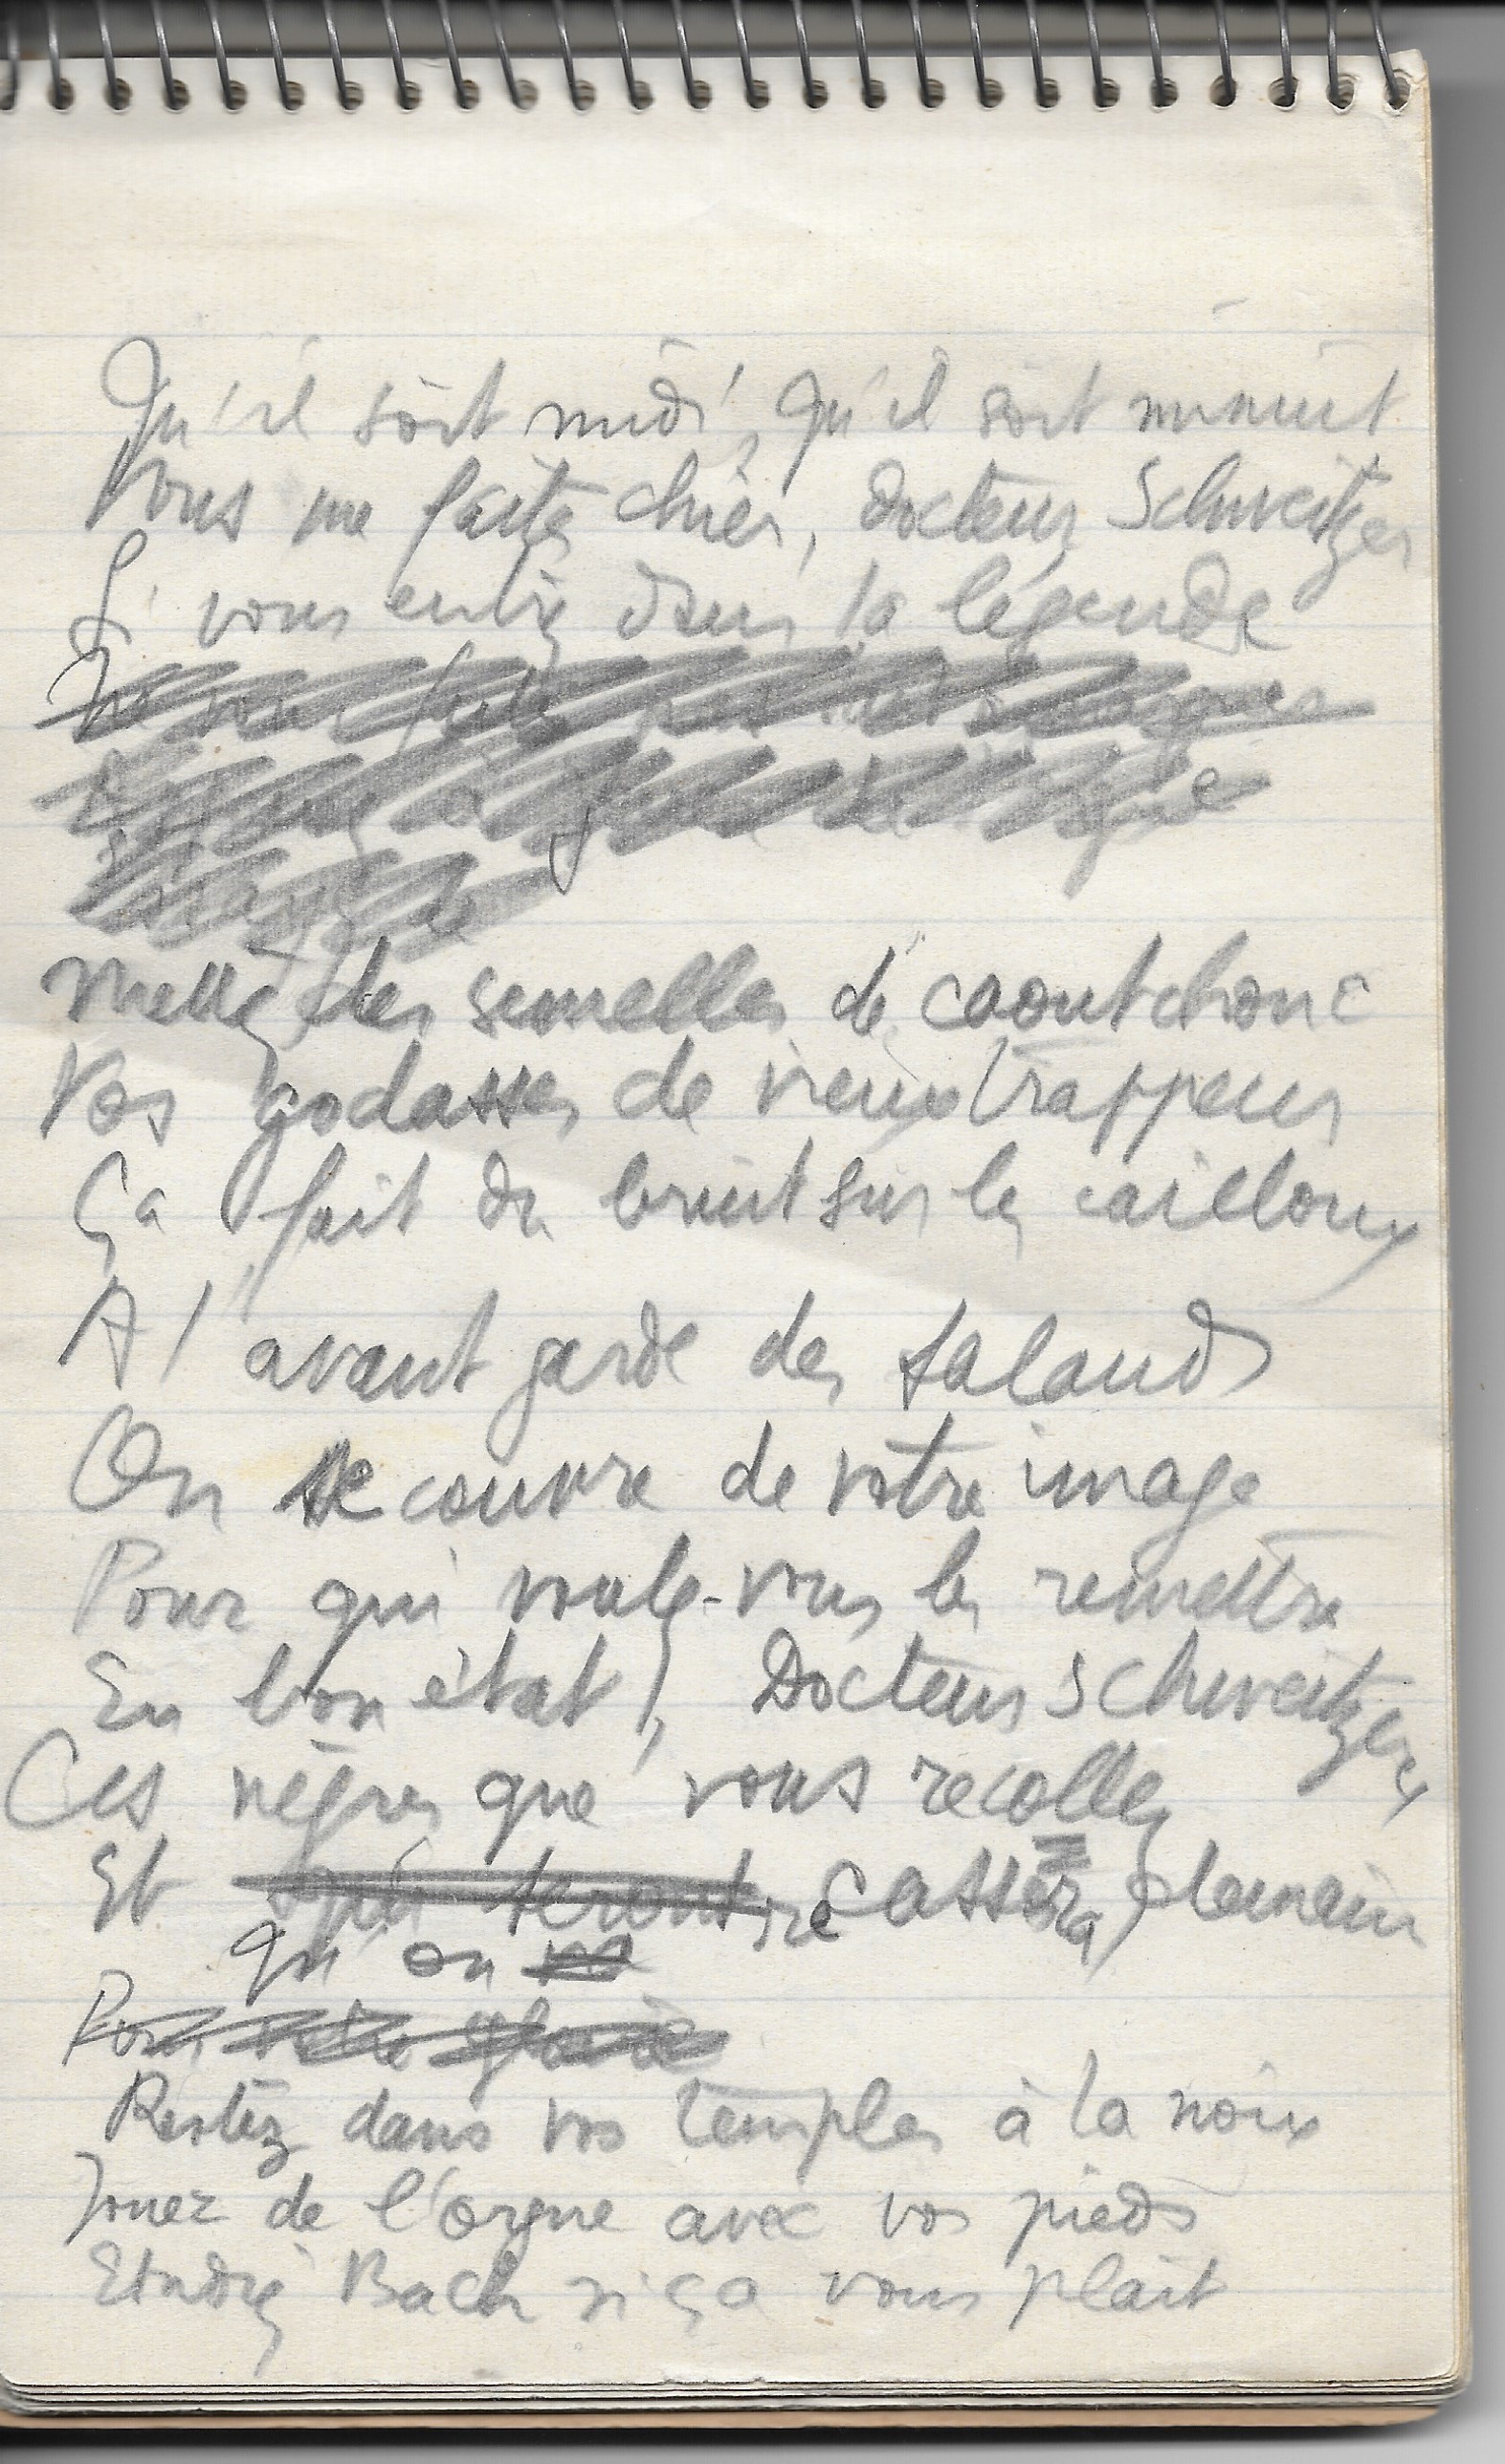 Qu'il soit midi, qu'il soit minuit
Vous me faites chier, Docteur Schweitzer
Si vous entrez dans la légende
Mettez des semelles de caoutchouc
Vos godasses de vieux trappeur
Ça fait du bruit sur les cailloux
A l'avant garde des salauds
On se couvre de votre image
Pour qui voulez-vous les remettre
En bon état, Docteur Schweitzer
Ces nègres que vous recollez
Et qui seront cassera demain
Qu'on
Pour votre gloire
Restez dans vos temples à la noix
Jouez de l'orgue avec vos pieds
Etudiez Bach si ça vous plait